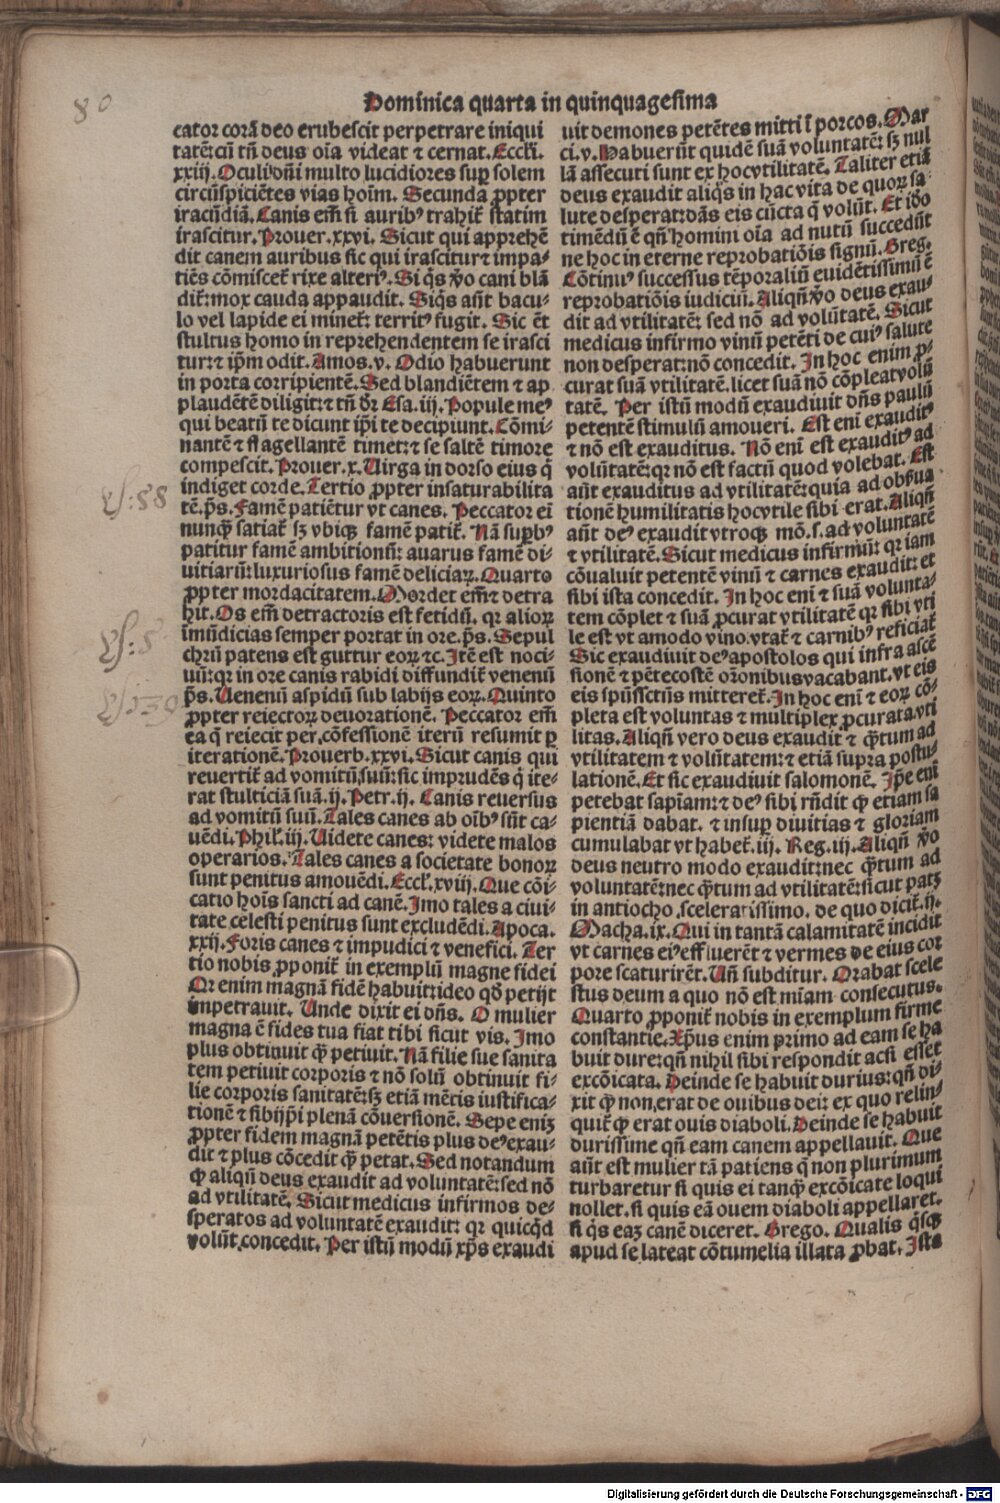 80
Dominica quarta in quinquagesima
cator corã deo erubescit perpetrare iniqui
tatẽ: cũ tñ deus oĩa videat ⁊ cernat. Eccli.
xxiij. Oculi dñi multo lucidiores sup̱ solem
circũspiciẽtes vias hoĩm. Secunda ꝓpter
iracũdiã. Canis em̃ si auribꝰ trahit̃ statim
irascitur. Prouer. xxvi. Sicut qui apprehẽ
dit canem auribus sic qui irascitur ⁊ impa⸗
tiẽs cõmiscet̃ rixe alteriꝰ. Si q̃s v̾o cani blã
dit̃: mox cauda appaudit. Siq̃s aũt bacu⸗
lo vel lapide ei minet̃: territꝰ fugit. Sic ẽt
stultus homo in reprehendentem se irasci
tur: ⁊ ip̃m odit. Amos. v. Odio habuerunt
in porta corripientẽ. Sed blandiẽtem ⁊ ap
plaudẽtẽ diligit: ⁊ tñ dr̃ Esa. iij. Popule meꝰ
qui beatũ te dicunt ip̃i te decipiunt. Cõmi⸗
nantẽ ⁊ flagellantẽ timet: ⁊ se saltẽ timore
compescit. Prouer. x. Uirga in dorso eius q̃
indiget corde. Tertio ꝓpter insaturabilita
tẽ. p̃s. Famẽ patiẽtur vt canes. Peccator eĩ
nunq̃ satiat̃ sꝫ vbiqꝫ famẽ patit̃. Nã sup̱bꝰ
patitur famẽ ambitionũ: auarus famẽ di⸗
uitiarũ: luxuriosus famẽ deliciaꝝ. Quarto
ꝓpter mordacitatem. Mordet em̃ ⁊ detra
hit. Os em̃ detractoris est fetidũ. qꝛ alioꝝ
imũdicias semper portat in ore. p̃s. Sepul
chrũ patens est guttur eoꝝ ⁊c. Itẽ est noci⸗
uũ: qꝛ in ore canis rabidi diffundit̃ venenũ
p̃s. Uenenũ aspidũ sub labijs eoꝝ. Quinto
ꝓpter reiectoꝝ deuorationẽ. Peccator em̃
ea q̃ reiecit per cõfessionẽ iterũ resumit ꝑ
iterationẽ. Prouerb. xxvi. Sicut canis qui
reuertit̃ ad vomitũ suũ: sic imprudẽs q̃ ite⸗
rat stulticiã suã. ij. Petr. ij. Canis reuersus
ad vomitũ suũ. Tales canes ab oĩbꝰ sũt ca⸗
uẽdi. Phil̃. iij. Uidete canes: videte malos
operarios. Tales canes a societate bonoꝝ
sunt penitus amouẽdi. Eccl̃. xviij. Que cõi⸗
catio hoĩs sancti ad canẽ. Imo tales a ciui⸗
tate celesti penitus sunt excludẽdi. Apoca.
xxij. Foris canes ⁊ impudici ⁊ venefici. Ter
tio nobis ꝓponit̃ in exemplũ magne fidei
Qꝛ enim magnã fidẽ habuit: ideo qð petijt
impetrauit. Unde dixit ei dñs. O mulier
magna ẽ fides tua fiat tibi sicut vis. Imo
plus obtinuit q̃ petiuit. Nã filie sue sanita
tem petiuit corporis ⁊ nõ solũ obtinuit fi⸗
lie corporis sanitatẽ: sꝫ etiã mẽtis iustifica⸗
tionẽ ⁊ sibijp̃i plenã cõuersionẽ. Sepe enĩꝫ
ꝓpter fidem magnã petẽtis plus deꝰ exau⸗
dit ⁊ plus cõcedit q̃ petat. Sed notandum
ꝙ aliqñ deus exaudit ad voluntatẽ: sed nõ
ad vtilitatẽ. Sicut medicus infirmos de⸗
speratos ad voluntatẽ exaudit: qꝛ quicq̃d
volũt concedit. Per istũ modũ xp̃s exaudi
uit demones petẽtes mitti ĩ porcos. Mar
ci. v. Habuerũt quidẽ suã voluntatẽ: sꝫ nul
lã assecuti sunt ex hoc vtilitatẽ. Taliter etiã
deus exaudit aliq̃s in hac vita de quoꝝ sa⸗
lute desperat: dãs eis cũcta q̃ volũt. Et iðo
timẽdũ ẽ qñ homini oĩa ad nutũ succedũt
ne hoc in eterne reprobatiõis signũ. Greg.
Cõtinuꝰ successus tẽporaliũ euidẽtissimũ ẽ
reprobatiõis iudiciũ. Aliqñ v̾o deus exau⸗
dit ad vtilitatẽ: sed nõ ad volũtatẽ. Sicut
medicus infirmo vinũ petẽti de cuiꝰ salute
non desperat: nõ concedit. In hoc enim ꝓ⸗
curat suã vtilitatẽ. licet suã nõ cõpleat volũ
tatẽ. Per istũ modũ exaudiuit dñs paulũ
petentẽ stimulũ amoueri. Est enĩ exauditꝰ
⁊ nõ est exauditus. Nõ enĩ est exauditꝰ ad
volũtatẽ: qꝛ nõ est factũ quod volebat. Est
aũt exauditus ad vtilitatẽ: quia ad obserua
tionẽ humilitatis hoc vtile sibi erat. Aliqñ
aũt deꝰ exaudit vtroqꝫ mõ. s. ad voluntatẽ
⁊ vtilitatẽ. Sicut medicus infirmũ: qꝛ iam
cõualuit petentẽ vinũ ⁊ carnes exaudit: et
sibi ista concedit. In hoc enĩ ⁊ suã volunta⸗
tem cõplet ⁊ suã ꝓcurat vtilitatẽ qꝛ sibi vti
le est vt amodo vino vtat̃ ⁊ carnibꝰ reficiat̃
Sic exaudiuit deꝰ apostolos qui infra ascẽ
sionẽ ⁊ pẽtecostẽ oꝛ̃onibus vacabant. vt eis
eis spũssctũs mitteret̃. In hoc enĩ ⁊ eoꝝ cõ⸗
pleta est voluntas ⁊ multiplex ꝓcurata vti
litas. Aliqñ vero deus exaudit ⁊ q̃tum ad
vtilitatem ⁊ volũtatem: ⁊ etiã supra postu⸗
lationẽ. Et sic exaudiuit salomonẽ. Ip̃e enĩ
petebat sapĩam: ⁊ deꝰ sibi rñdit ꝙ etiam sa
pientiã dabat. ⁊ insup̱ diuitias ⁊ gloriam
cumulabat vt habet̃. iij. Reg. iij. Aliqñ v̾o
deus neutro modo exaudit: nec q̃tum ad
voluntatẽ: nec q̃tum ad vtilitatẽ: sicut patꝫ
in antiocho sceleratissimo. de quo dicit̃. ij.
Macha. ix. Qui in tantã calamitatẽ incidit
vt carnes eiꝰ effluerẽt ⁊ vermes de eius cor
pore scaturirẽt. Uñ subditur. Orabat scele
stus deum a quo nõ est mĩam consecutus.
Quarto ꝓponit̃ nobis in exemplum firme
constantie. Xp̃us enim primo ad eam se ha
buit dure: qñ nihil sibi respondit acsi esset
excõicata. Deinde se habuit durius: qñ di⸗
xit ꝙ non erat de ouibus dei: ex quo relin⸗
quit̃ ꝙ erat ouis diaboli. Deinde se habuit
durissime qñ eam canem appellauit. Que
aũt est mulier tã patiens q̃ non plurimum
turbaretur si quis ei tanq̃ excõicate loqui
nollet. si quis eã ouem diaboli appellaret.
si q̃s eaꝫ canẽ diceret. Grego. Qualis q̃sqꝫ
apud se lateat cõtumelia illata ꝓbat. Ista
ps: 58
ps: 5
Digitalisierung gefördert durch die Deutsche Forschungsgemeinschaft - DFG